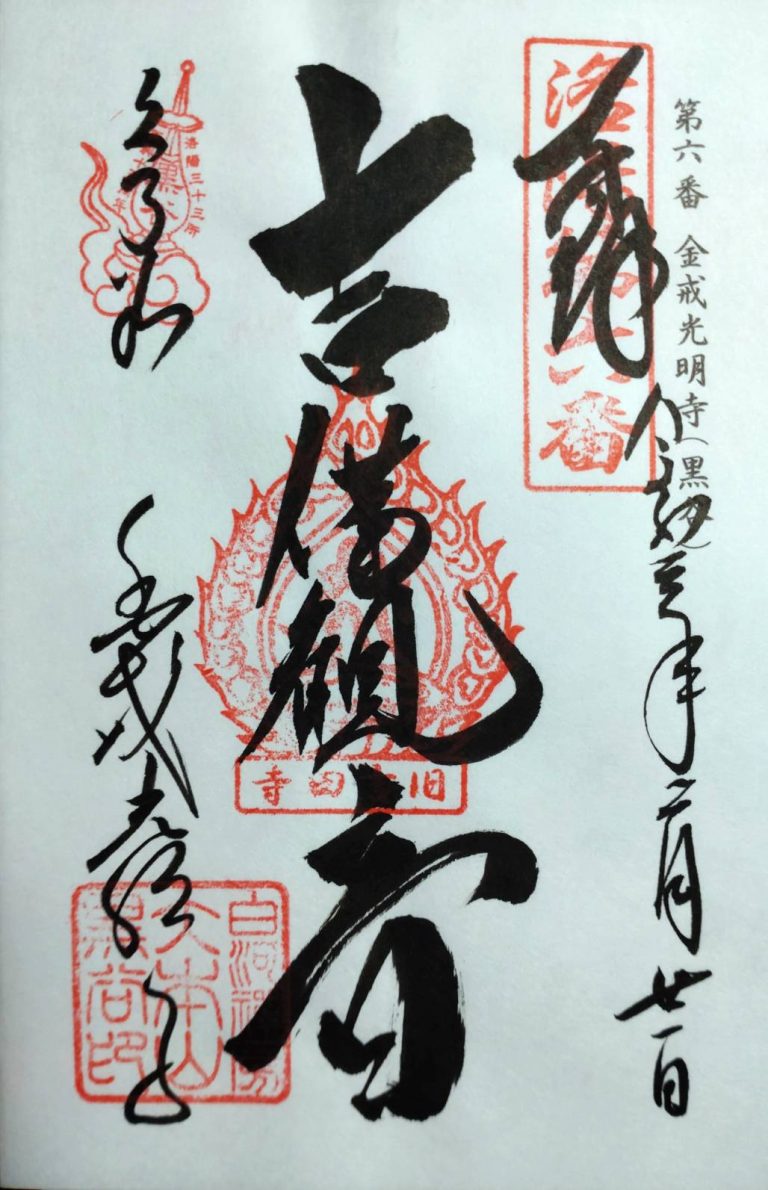 第六番 金戒光明寺（黒谷）
洛陽第六番
奉拝
令和三年二月廿一日
吉備観音
旧吉田寺
洛陽三十三所
くろ谷
金戒光明寺
白河禅房
大本山
黒谷印